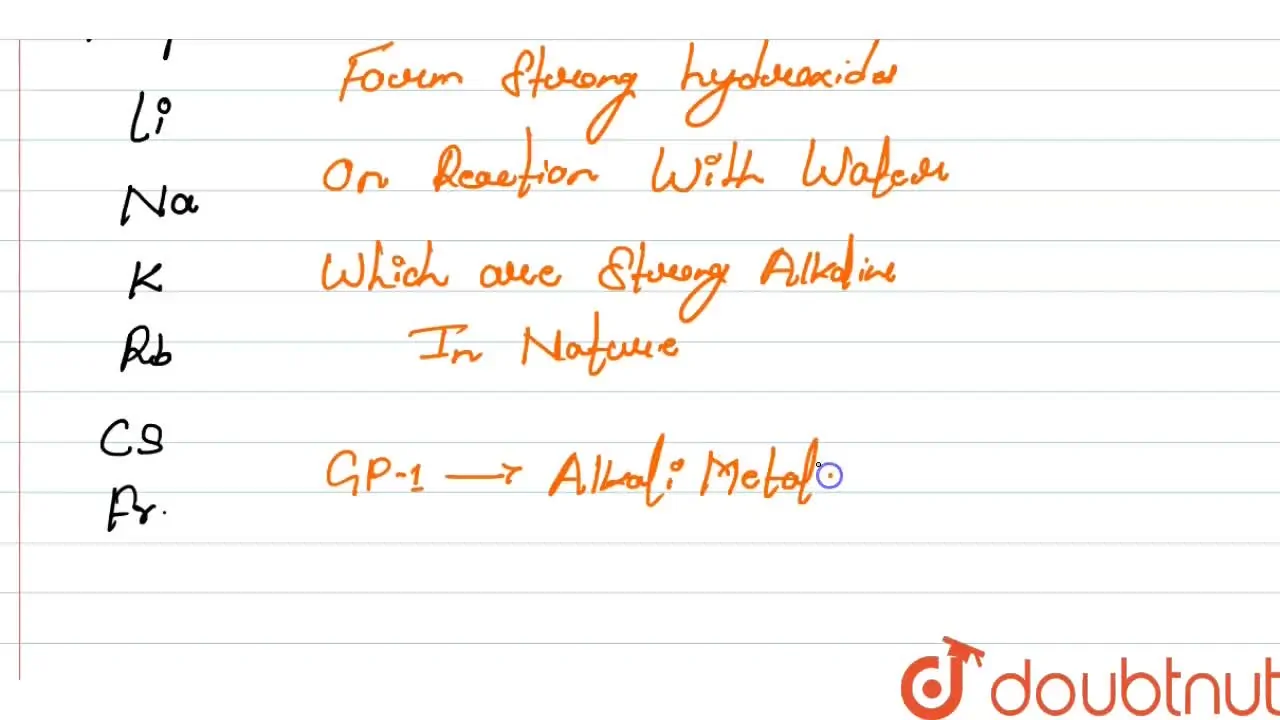 Form Strong hydroxides
Li
On Reaction With Water
Na
Which are Strong Alkaline
K
In Nature
Rb
CS
GP-1 → Alkali Metal
Fr.
doubtnut